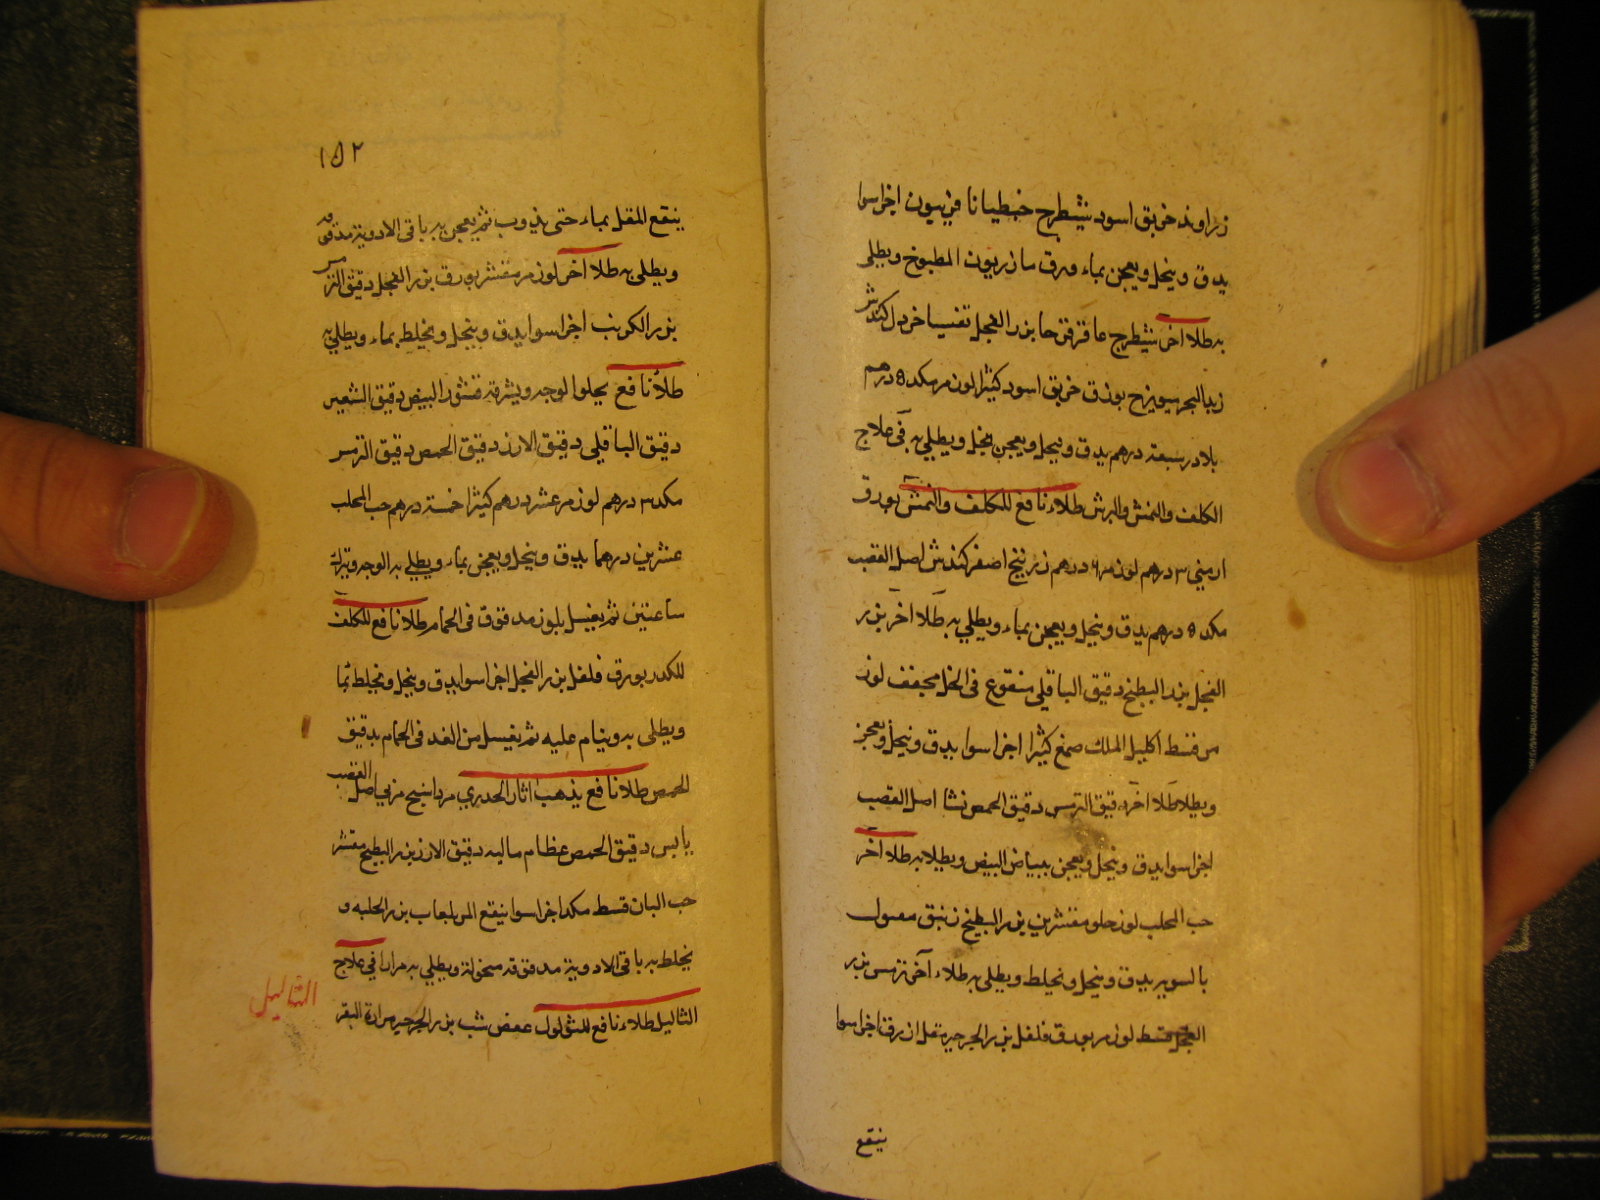 زراوند خربق اسود شيطرج جنطيانا فربيون اجزا سوا
يدق وينخل ويعجن بماء ورق مازريون المطبوخ ويطلى
به طلا اخر شيطرج عاقرقرحا بزر الفجل تفسيا خردل كندش
زبد البحر ميويزج بورق خربق اسود كثيرا لوز مر مكد ٥ درهم
بلادر سبعة درهم يدق وينخل ويعجن بخل ويطلي به في علاج
الكلف والنمش والبرش طلاء نافع للكلف والنمش بورق
ارمني ٣ درهم لوز مر ٦ درهم زرنيخ اصفر كندش اصل القصب
مكد ٥ درهم يدق وينخل ويعجن بماء ويطلي به طلا آخر بزر
الفجل بزر البطيخ دقيق الباقلي منقوع في الخل مجفف لوز
مر قسط اكليل الملك صمغ كثيرا اجزا سوا يدق وينخل ويعجن
ويطلا طلا آخر دقيق الترمس دقيق الحمص نشا اصل القصب
اجزا سوا يدق وينخل ويعجن ببياض البيض ويطلا به طلا آخر
حب المحلب لوز حلو مقشرين بزر البطيخ زنبق معمول
بالسوير يدق وينخل ونخلط ويطلى به طلاء آخر ترمس بزر
الفجل قسط لوز مر بورق فلفل بزر الجرجير مقل ازرق اجزا سوا
ينقع
١٥٢
ينقع المقل بماء حتى يذوب ثم يعجن به باقي الادوية مدقوقة
ويطلى به طلا اخر لوز مر مقشر بورق بزر الفجل دقيق الترمس
بزر الكرنب اجزا سوا يدق وينخل ونخلط بماء ويطلي به
طلاء نافع يجلوا الوجه ويشرقه قشور البيض دقيق الشعير
دقيق الباقلي دقيق الارز دقيق الحمص دقيق الترمس
مكد ٣ درهم لوز مر عشر درهم كثيرا خمسة درهم حب المحلب
عشرين درهما يدق وينخل ويعجن بماء ويطلي به الوجه ويترك
ساعتين ثم يغسل بلوز مدقوق في الحمام طلا نافع للكلف
للكدر بورق فلفل بزر الفجل اجزا سوا يدق وينخل ونخلط بما
ويطلى به وينام عليه ثم يغسل من الغد في الحمام بدقيق
الحمص طلا نافع يذهب اثار الجدري مرداسنج مربي اصل القصب
يابس دقيق الحمص عظام باليه دقيق الارز بزر البطيخ مقشر
حب البان قسط مكد اجزا سوا ينقع المر بلعاب بزر الحلبه و
يخلط به باقي الادوية مدقوقة منخولة ويطلي به مرارا في علاج
الثاليل طلاء نافع للثولول عفص شب بزر الجرجير مرارة البقر
الثاليل